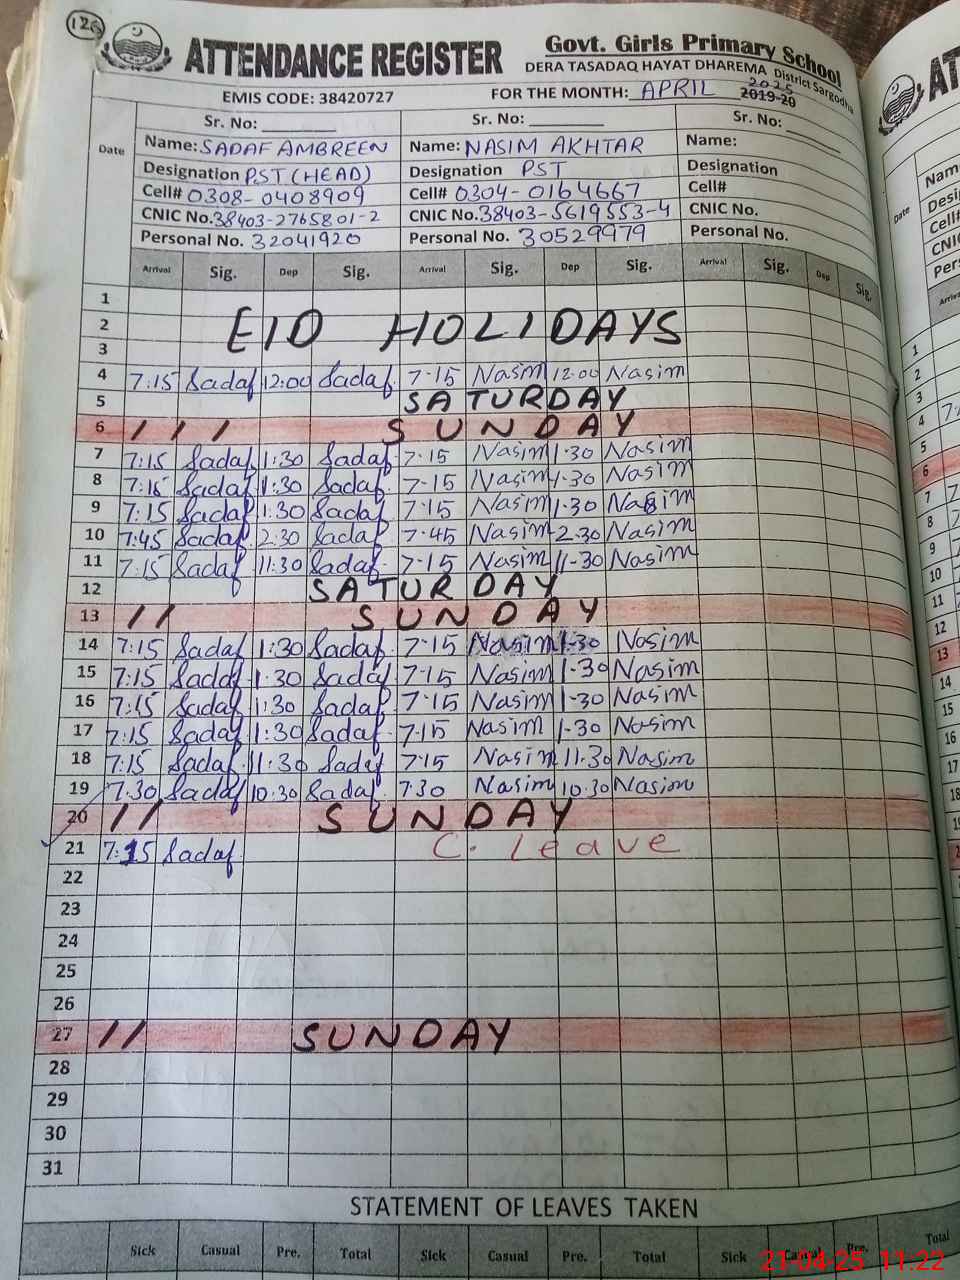 126
ATTENDANCE REGISTER
Govt. Girls Primary School
DERA TASADAQ HAYAT DHAREMA District Sargodha
EMIS CODE: 38420727 FOR THE MONTH: APRIL 2025 2019-20
Date Sr. No: Sr. No: Sr. No:
Name: SADAF AMBREEN Name: NASIM AKHTAR Name:
Designation PST (HEAD) Designation PST Designation
Cell# 0308-0408909 Cell# 0304-0164667 Cell#
CNIC No. 38403-2765801-2 CNIC No. 38403-5619553-4 CNIC No.
Personal No. 32041920 Personal No. 30529979 Personal No.
Arrival Sig. Dep Sig. Arrival Sig. Dep Sig. Arrival Sig. Dep Sig.
1
2 EID HOLIDAYS
3
4 7:15 Sadaf 12:00 Sadaf 7-15 Nasim 12:00 Nasim
5 SATURDAY
6 / / / SUNDAY
7 7:15 Sadaf 1:30 Sadaf 7-15 Nasim 1-30 Nasim
8 7:15 Sadaf 1:30 Sadaf 7-15 Nasim 1-30 Nasim
9 7:15 Sadaf 1:30 Sadaf 7-15 Nasim 1-30 Nasim
10 7:45 Sadaf 2:30 Sadaf 7-45 Nasim 2-30 Nasim
11 7:15 Sadaf 11:30 Sadaf 7-15 Nasim 11-30 Nasim
12 SATURDAY
13 / / SUNDAY
14 7:15 Sadaf 1:30 Sadaf 7-15 Nasim 1-30 Nasim
15 7:15 Sadaf 1:30 Sadaf 7-15 Nasim 1-30 Nasim
16 7:15 Sadaf 1:30 Sadaf 7-15 Nasim 1-30 Nasim
17 7:15 Sadaf 1:30 Sadaf 7-15 Nasim 1-30 Nasim
18 7:15 Sadaf 11:30 Sadaf 7-15 Nasim 11-30 Nasim
19 7:30 Sadaf 10:30 Sadaf 7-30 Nasim 10-30 Nasim
20 / / SUNDAY
21 7:15 Sadaf C. Leave
22
23
24
25
26
27 / / SUNDAY
28
29
30
31
STATEMENT OF LEAVES TAKEN
Sick Casual Pre. Total Sick Casual Pre. Total Sick Casual Pre. Total
21-04-25 11:22